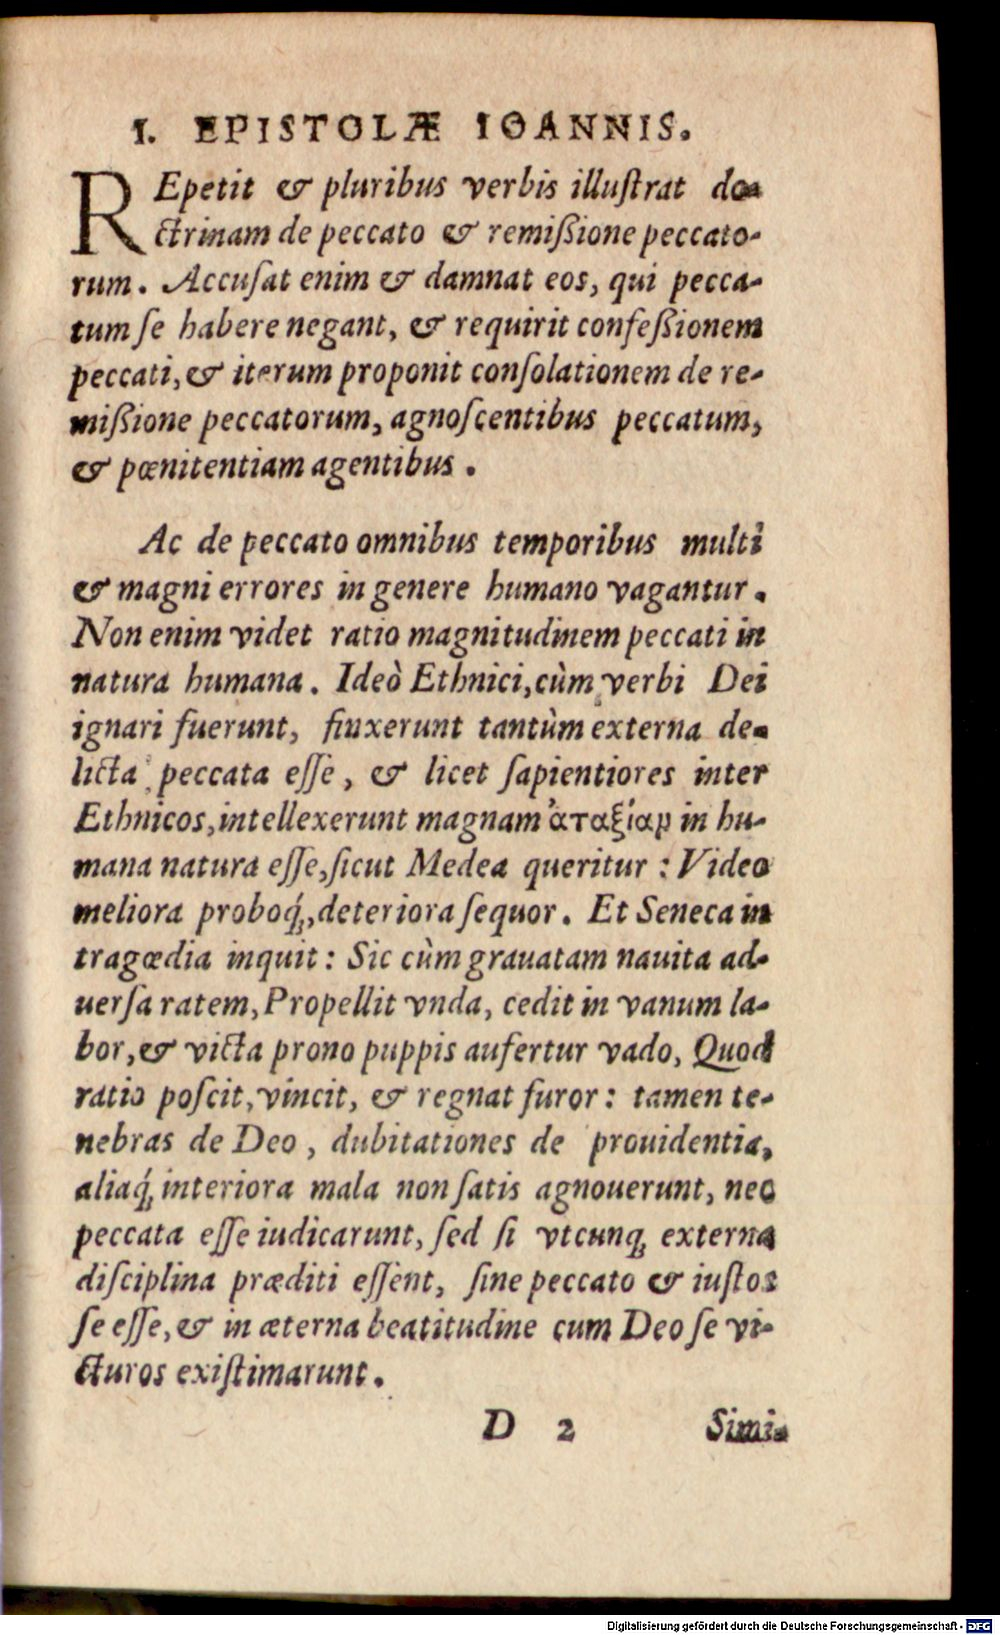 I. EPISTOLÆ IOANNIS.
REpetit & pluribus verbis illuſtrat do-
ctrinam de peccato & remiſsione peccato-
rum. Accuſat enim & damnat eos, qui pecca-
tum ſe habere negant, & requirit confeſsionem
peccati, & iterum proponit conſolationem de re-
miſsione peccatorum, agnoſcentibus peccatum,
& pœnitentiam agentibus.
Ac de peccato omnibus temporibus multi
& magni errores in genere humano vagantur.
Non enim videt ratio magnitudinem peccati in
natura humana. Ideò Ethnici, cùm verbi Dei
ignari fuerunt, finxerunt tantùm externa de-
licta peccata eſſe, & licet ſapientiores inter
Ethnicos, intellexerunt magnam ἀταξίαμ in hu-
mana natura eſſe, ſicut Medea queritur: Video
meliora proboq́;, deteriora ſequor. Et Seneca in
tragœdia inquit: Sic cùm grauatam nauita ad-
uerſa ratem, Propellit vnda, cedit in vanum la-
bor, & victa prono puppis aufertur vado, Quod
ratio poſcit, vincit, & regnat furor: tamen te-
nebras de Deo, dubitationes de prouidentia,
aliaq́; interiora mala non ſatis agnouerunt, nec
peccata eſſe iudicarunt, ſed ſi vtcunq; externa
diſciplina præditi eſſent, ſine peccato & iuſtos
ſe eſſe, & in æterna beatitudine cum Deo ſe vi-
cturos exiſtimarunt.
D 2 Simi-
Digitalisierung gefördert durch die Deutsche Forschungsgemeinschaft - DFG